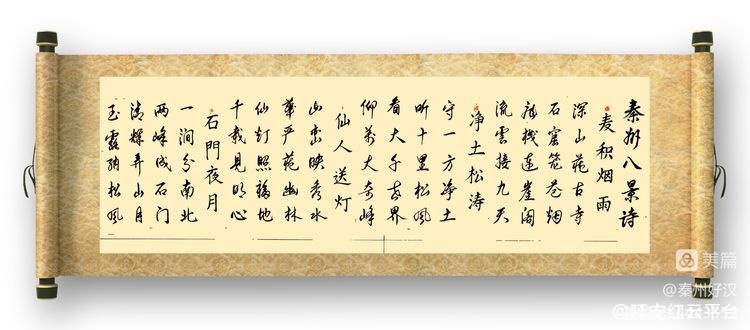 秦州八景诗
麦积烟雨
深山藏古寺
石窟笼苍烟
飛栈连崖阁
流雲接九天
净土松涛
守一方净土
听十里松风
看大千世界
仰万丈奇峰
仙人送灯
山峦映秀水
华严藏幽林
仙灯照福地
千载见明心
石門夜月
一涧分南北
两峰成石门
清辉弄山月
玉露 松风
美篇
@秦州好汉
@延安红云平台